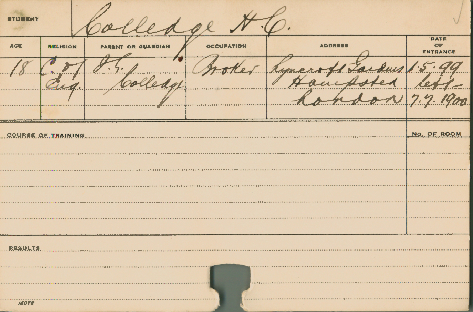 STUDENT Colledge H.C.
AGE RELIGION PARENT OR GUARDIAN OCCUPATION ADDRESS DATE OF ENTRANCE
18 C. of J.G. Broker Lyncroft Gardens 1.5.99
Eng. Colledge Hampsted left
London 7.7.1900
COURSE OF TRAINING No. OF ROOM
RESULTS
NOTE